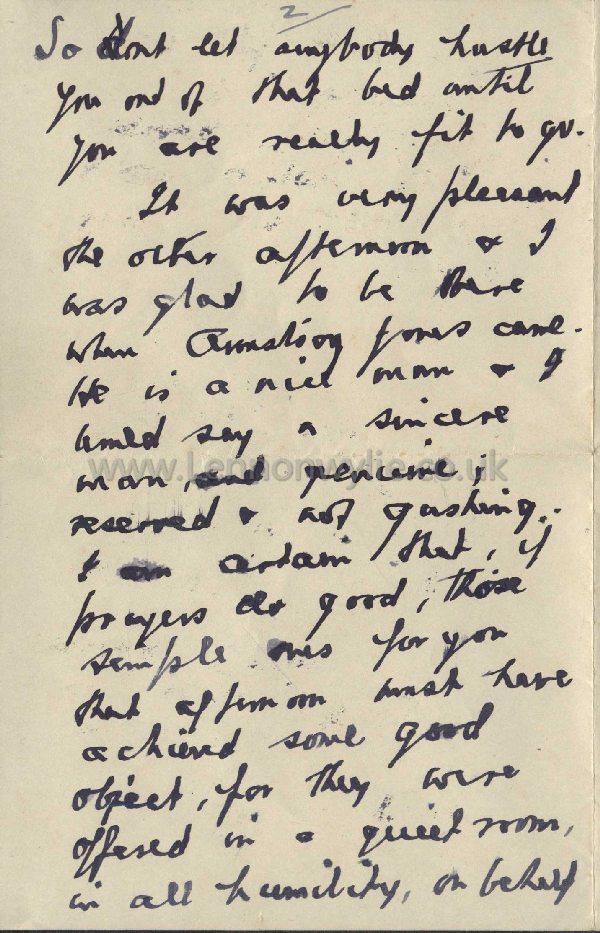 2
So dont let anybody hustle
you out of that bed until
you are really fit to go.
It was very pleasant
the other afternoon & I
was glad to be there
when Armstrong Jones came.
He is a nice man & I
would say a sincere
man, and genuine;
reserved & not gushing.
I am certain that, if
prayers do good, those
simple ones for you
that afternoon must have
achieved some good
object, for they were
offered in a quiet room,
in all humility, on behalf